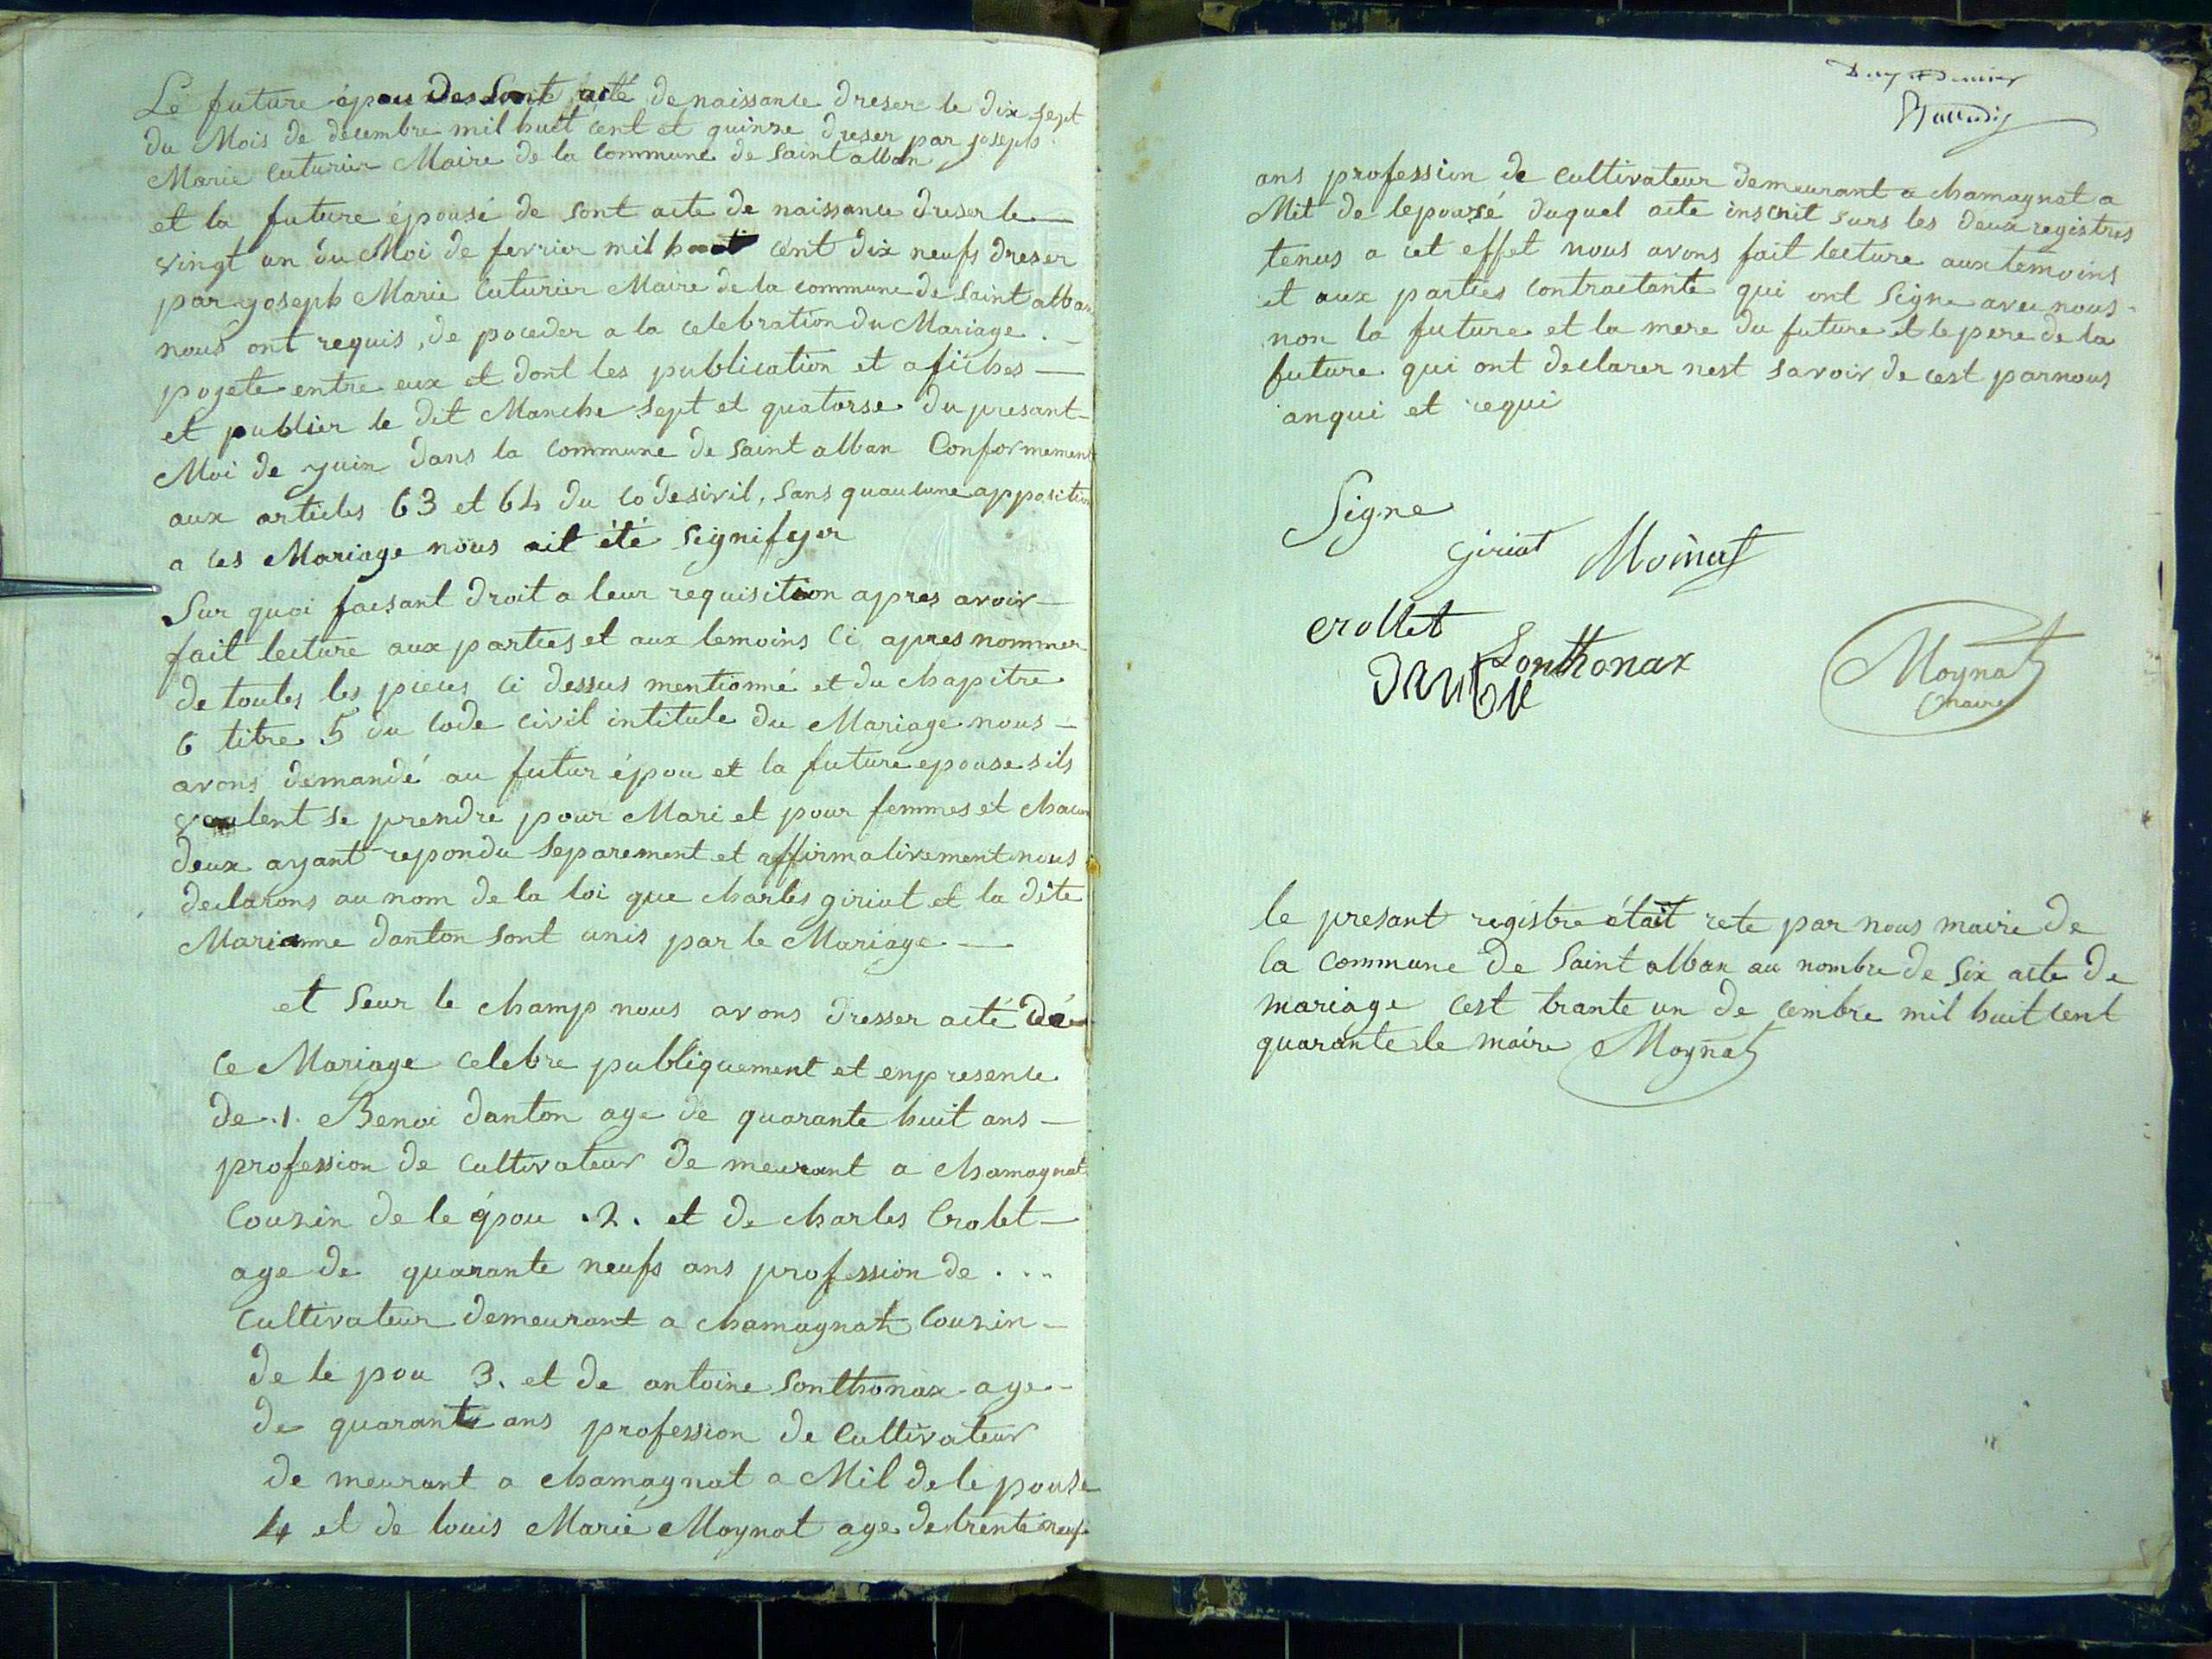 Le future épou des sont acte de naissance dreser le dix sept
du Mois de decembre mil huit cent et quinze dreser par joseph
Marie Cuturier Maire de la Commune de Saint alban
et la future épousé de sont acte de naissance dreser le
vingt un du Moi de fevrier mil huit cent dix neufs dreser
par joseph Marie Cuturier Maire de la commune de Saint alban
nous ont requis, de poceder a la celebration du Mariage
pojete entre eux et dont les publication et afiches
et publier le dit Manche sept et quatorse du presant
Moi de juin dans la Commune de Saint alban Conformement
aux articles 63 et 64 du Code sivil, sans quaucune apposition
a ces Mariage nous ait été signifyer
Sur quoi faisant droit a leur requisition apres avoir
fait lecture aux parties et aux temoins Ci apres nommer
de toutes les pieces Ci dessus mentionné et du chapitre
6 titre 5 du Code Civil intitule du Mariage nous
avons demandé au futur épou et la future epouse sils
veulent se prendre pour Mari et pour femmes et chacun
deux ayant repondu separement et affirmativement nous
declarons au nom de la loi que charles giriat et la dite
Marianne danton sont unis par le Mariage
et seur le champ nous avons dresser acté de
Ce Mariage celebre publiquement et en presence
de .1. Benoi danton age de quarante huit ans
profession de Cultivateur de meurant a chamagnat
Couzin de le épou .2. et de charles Crolet
age de quarante neufs ans profession de . . .
Cultivateur demeurant a chamagnat Couzin
de le pou 3. et de antoine Sonthonax age
de quarante ans profession de Cultivateur
de meurant a chamagnat a Mit de le pouse
4 et de louis Marie Moynat age de trente neufs
ans profession de Cultivateur demeurant a chamagnat a
Mit de lepouzé duquel acte inscrit surs les deux registres
tenus a cet effet nous avons fait lecture aux temoins
et aux parties Contractante qui ont signe avec nous
non la future et la mere du future et le pere de la
future qui ont declarer nest savoir de cest par nous
anqui et requi
Signe
giriat Moinat
crollet
Sonthonax
danton
Moynat
Maire
le presant registre était rete par nous maire de
la Commune de Saint alban au nombre de six acte de
mariage cest trante un de cembre mil huit cent
quarante le maire Moynat